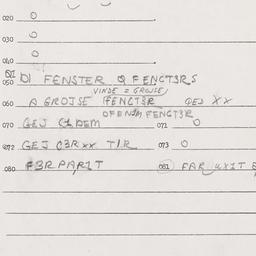 020 0
030 0
0
040
050 DI FENSTER Q FENCT3RS
VINDE = GROUSE/
060 A GROJSE FENCT3R GEJ XX
OFENEM FENCT3R
070 GEJ C1DEM 071 0
072 GEJ C3R xx TIR 073 0
080 F3RPAR1T 081 FAR UX1T